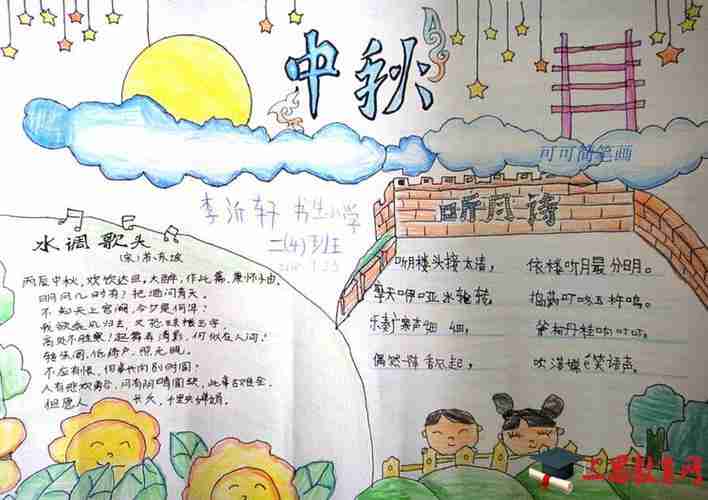 中秋
可可简笔画
李沂轩 书生小学
二(4)班
听月诗
水调歌头
(宋)苏东坡
丙辰中秋,欢饮达旦,大醉,作此篇,兼怀子由。
明月几时有?把酒问青天。
不知天上宫阙,今夕是何年?
我欲乘风归去,又恐琼楼玉宇,
高处不胜寒!起舞弄清影,何似在人间?
转朱阁,低绮户,照无眠。
不应有恨,何事长向别时圆?
人有悲欢离合,月有阴晴圆缺,此事古难全。
但愿人 长久,千里共婵娟。
听月楼头接太清,
依楼听月最分明。
摩天咿哑冰轮转,
捣药叮咚玉杵鸣。
乐奏广寒声细细,
斧柯丹桂响叮叮。
偶然一阵香风起,
吹落嫦娥笑语声。
上学教育网